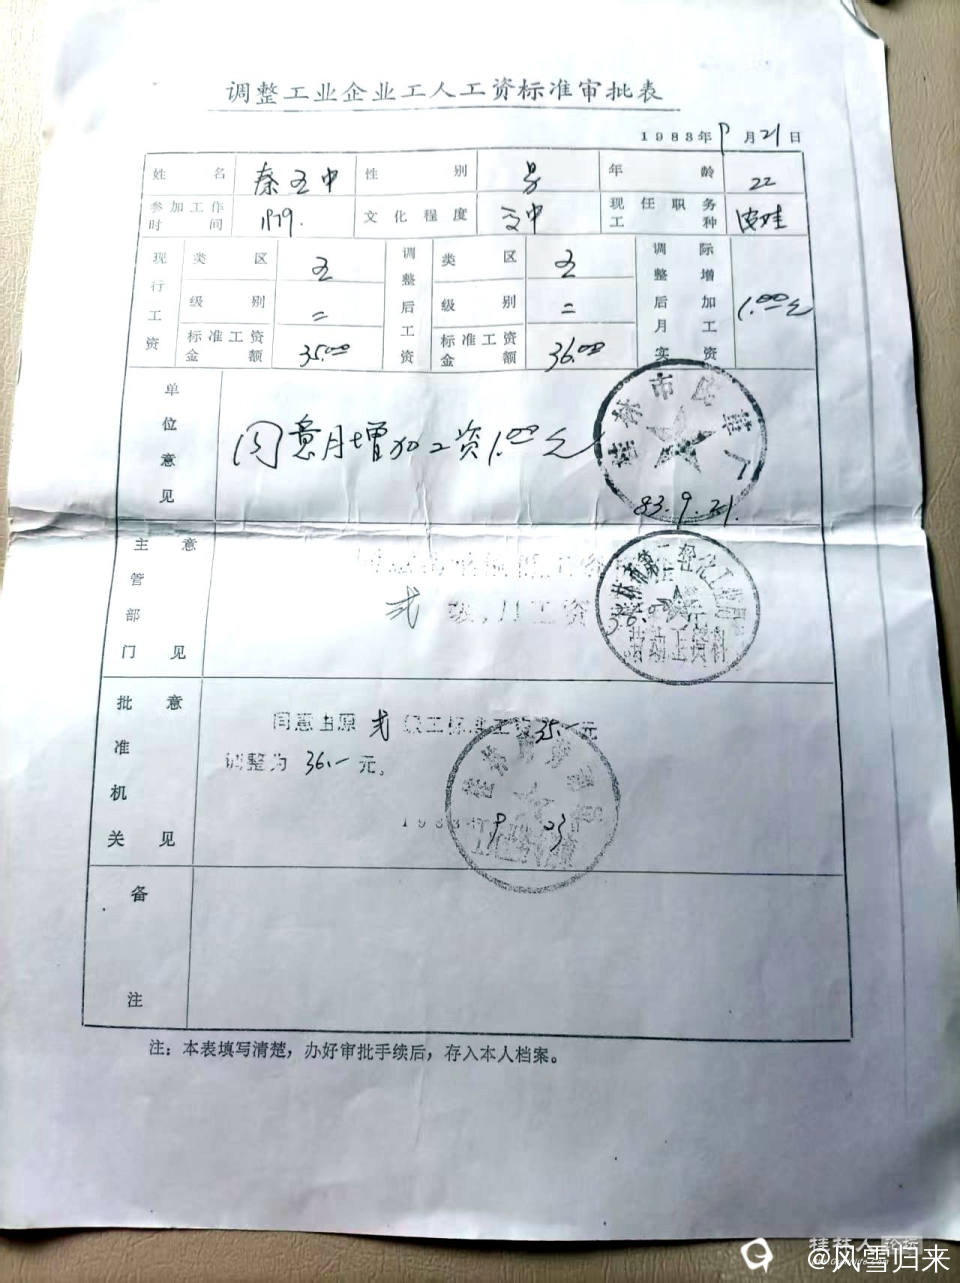 调整工业企业工人工资标准审批表
1983年9月21日
姓名 秦玉中 性别 男 年龄 22
参加工作时间 1979. 文化程度 高中 现任职务工种
现行工资 类区 五 调整后工资 类区 五 调整后月实际增加工资 1.00元
级别 二 级别 二
标准工资金额 35.00 标准工资金额 36.00
单位意见 同意月增加工资1.00元
桂林市 厂
83.9.21.
主管部门意见
桂林市第二轻化工业局
弍 级,月工资 36.00元
劳动工资科
批准机关意见 同意由原弍级工标准工资35.-元
调整为36.-元。
桂林市劳动局
1983年9 23
备注
注:本表填写清楚,办好审批手续后,存入本人档案。
桂林人论坛
@风雪归来